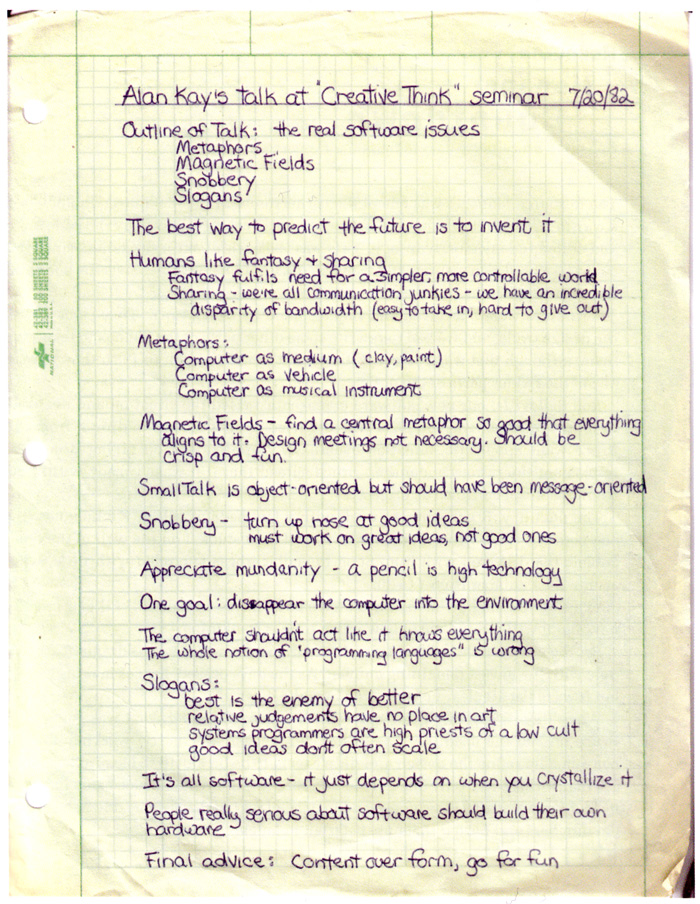 Alan Kay's talk at "Creative Think" seminar 7/20/82
Outline of Talk: the real software issues
Metaphors
Magnetic Fields
Snobbery
Slogans
The best way to predict the future is to invent it
Humans like fantasy + sharing
Fantasy fulfils need for a simpler, more controllable world
Sharing - we're all communication junkies - we have an incredible
disparity of bandwidth (easy to take in, hard to give out)
Metaphors:
Computer as medium (clay, paint)
Computer as vehicle
Computer as musical instrument
Magnetic Fields - find a central metaphor so good that everything
aligns to it. Design meetings not necessary. Should be
crisp and fun.
SmallTalk is object-oriented but should have been message-oriented
Snobbery - turn up nose at good ideas
must work on great ideas, not good ones
Appreciate mundanity - a pencil is high technology
One goal: dissappear the computer into the environment
The computer shouldn't act like it knows everything
The whole notion of "programming languages" is wrong
Slogans:
best is the enemy of better
relative judgements have no place in art
systems programmers are high priests of a low cult
good ideas don't often scale
It's all software - it just depends on when you crystallize it
People really serious about software should build their own
hardware
Final advice: Content over form, go for fun